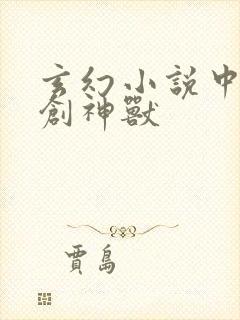 玄幻小說中
創神獸
賈島